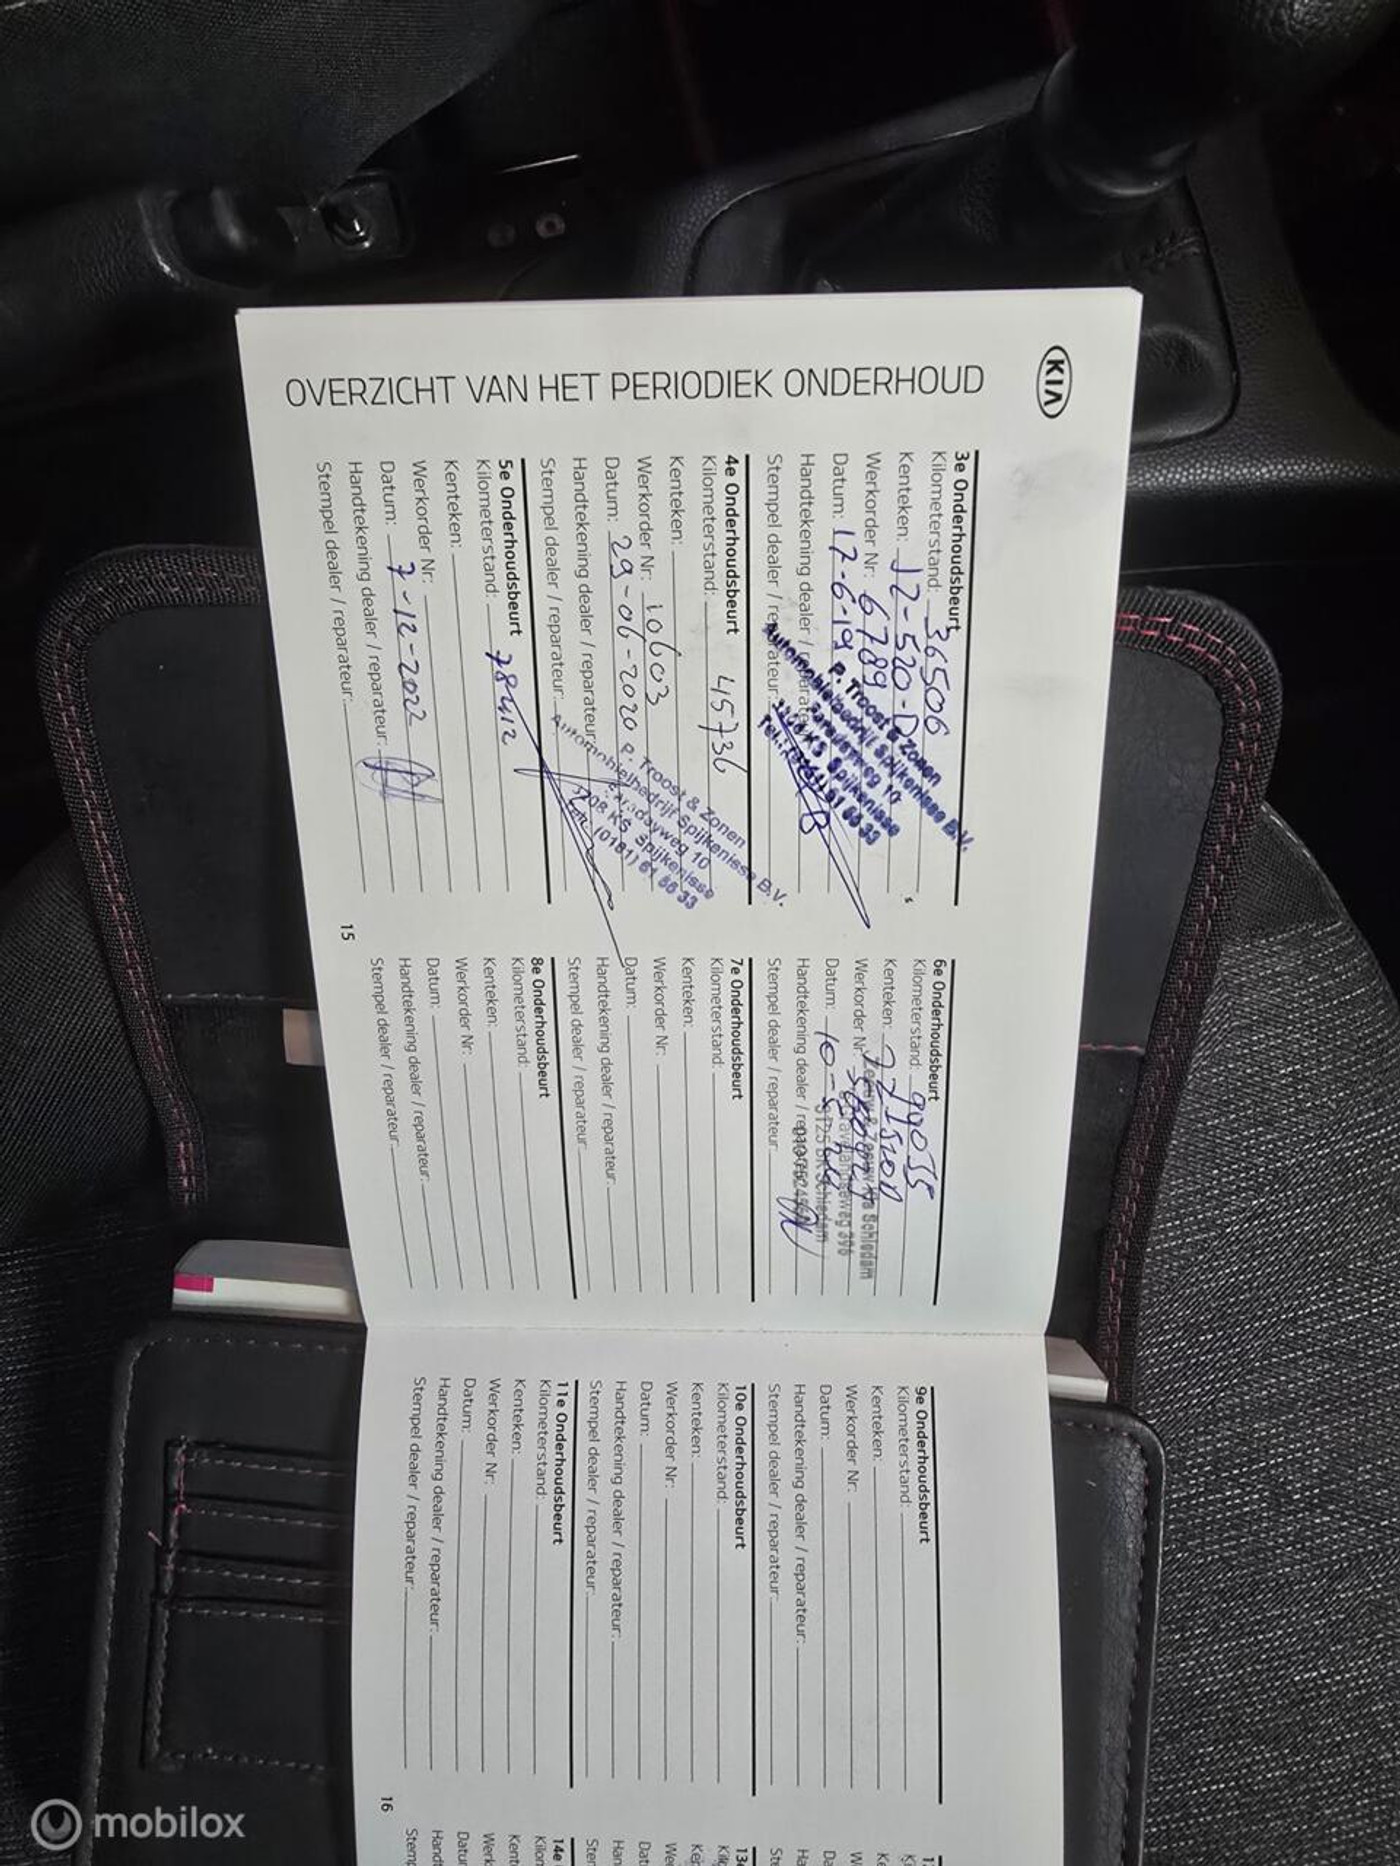 KIA
OVERZICHT VAN HET PERIODIEK ONDERHOUD
3e Onderhoudsbeurt
Kilometerstand: 36506
Kenteken: JZ-520-D
Werkorder Nr: 6789
Datum: 17-6-19
Handtekening dealer / reparateur:
Stempel dealer / reparateur:
P. Troost & Zonen
Automobielbedrijf Spijkenisse B.V.
Faradayweg 10
KS Spijkenisse
4e Onderhoudsbeurt
Kilometerstand: 45736
Kenteken:
Werkorder Nr: 10603
Datum: 29-06-2020
Handtekening dealer / reparateur:
Stempel dealer / reparateur:
P. Troost & Zonen
Automobielbedrijf Spijkenisse B.V.
Faradayweg 10
KS Spijkenisse
(0181) 61 66 33
5e Onderhoudsbeurt
Kilometerstand: 78412
Kenteken:
Werkorder Nr:
Datum: 7-12-2022
Handtekening dealer / reparateur:
Stempel dealer / reparateur:
15
6e Onderhoudsbeurt
Kilometerstand: 99055
Kenteken:
Werkorder Nr:
Datum: 10-
Handtekening dealer / reparateur:
Stempel dealer / reparateur:
Schiedam
396
Schiedam
7e Onderhoudsbeurt
Kilometerstand:
Kenteken:
Werkorder Nr:
Datum:
Handtekening dealer / reparateur:
Stempel dealer / reparateur:
8e Onderhoudsbeurt
Kilometerstand:
Kenteken:
Werkorder Nr:
Datum:
Handtekening dealer / reparateur:
Stempel dealer / reparateur:
9e Onderhoudsbeurt
Kilometerstand:
Kenteken:
Werkorder Nr:
Datum:
Handtekening dealer / reparateur:
Stempel dealer / reparateur:
10e Onderhoudsbeurt
Kilometerstand:
Kenteken:
Werkorder Nr:
Datum:
Handtekening dealer / reparateur:
Stempel dealer / reparateur:
11e Onderhoudsbeurt
Kilometerstand:
Kenteken:
Werkorder Nr:
Datum:
Handtekening dealer / reparateur:
Stempel dealer / reparateur:
16
14e
mobilox